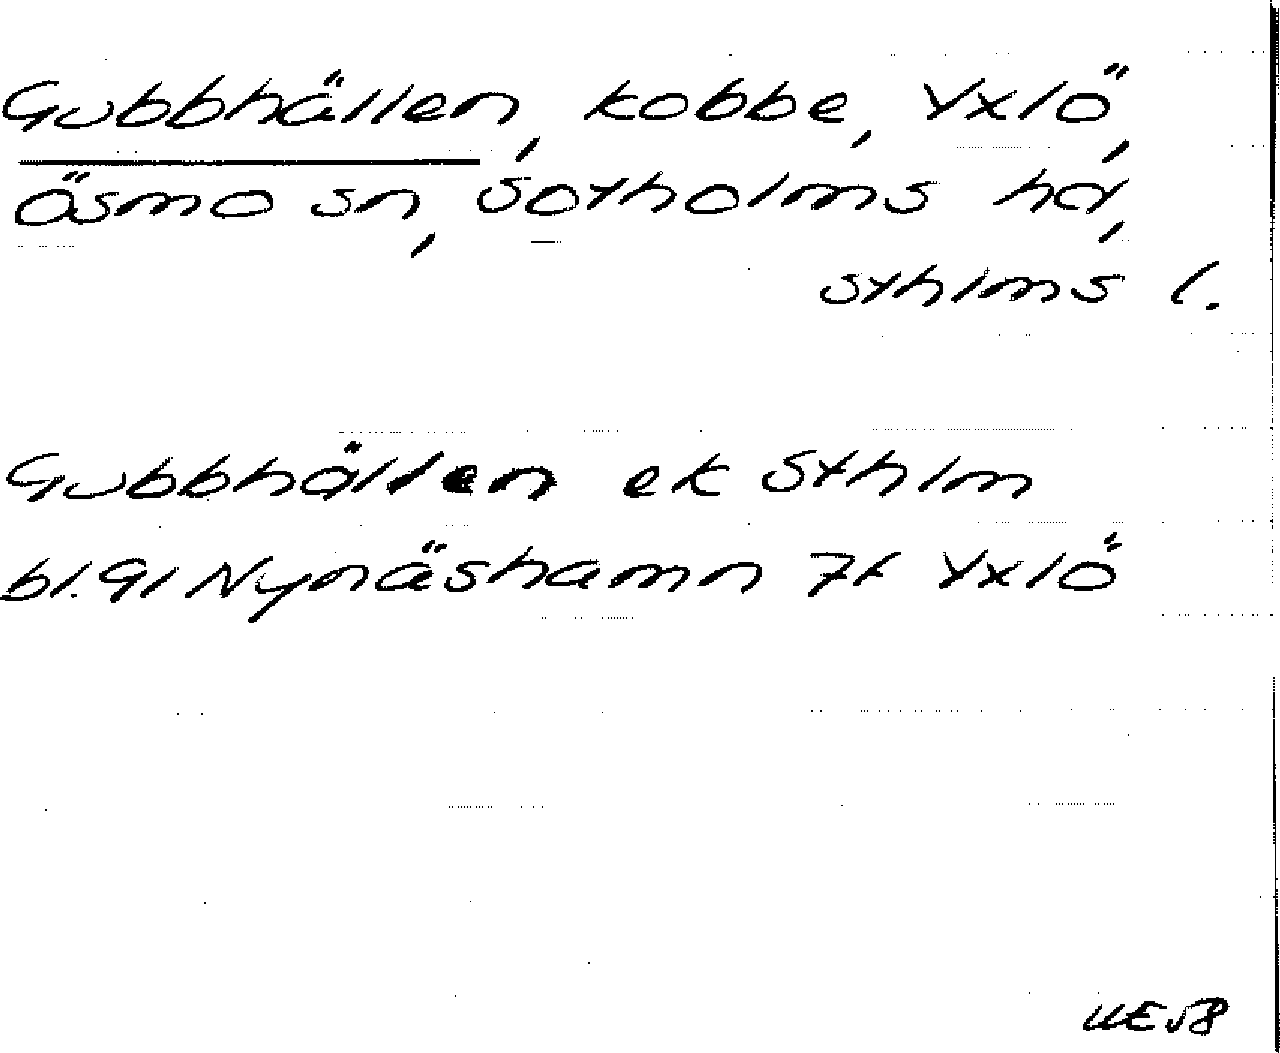 Gubbhällen, kobbe, Yxlö,
Ösmo sn, Sotholms hd,
Sthlms l.
Gubbhällen ek Sthlm
bl. 91 Nynäshamn 7f Yxlö
UE58